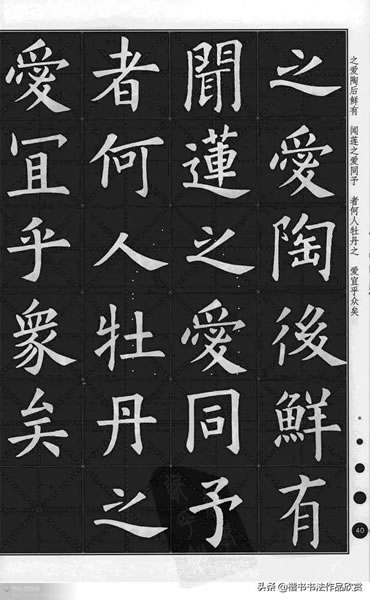 之愛陶後鮮有
聞蓮之愛同予
者何人牡丹之
愛冝乎衆矣
之爱陶后鲜有 闻莲之爱同予 者何人牡丹之 爱宜乎众矣
40
头条 @楷书书法作品欣赏